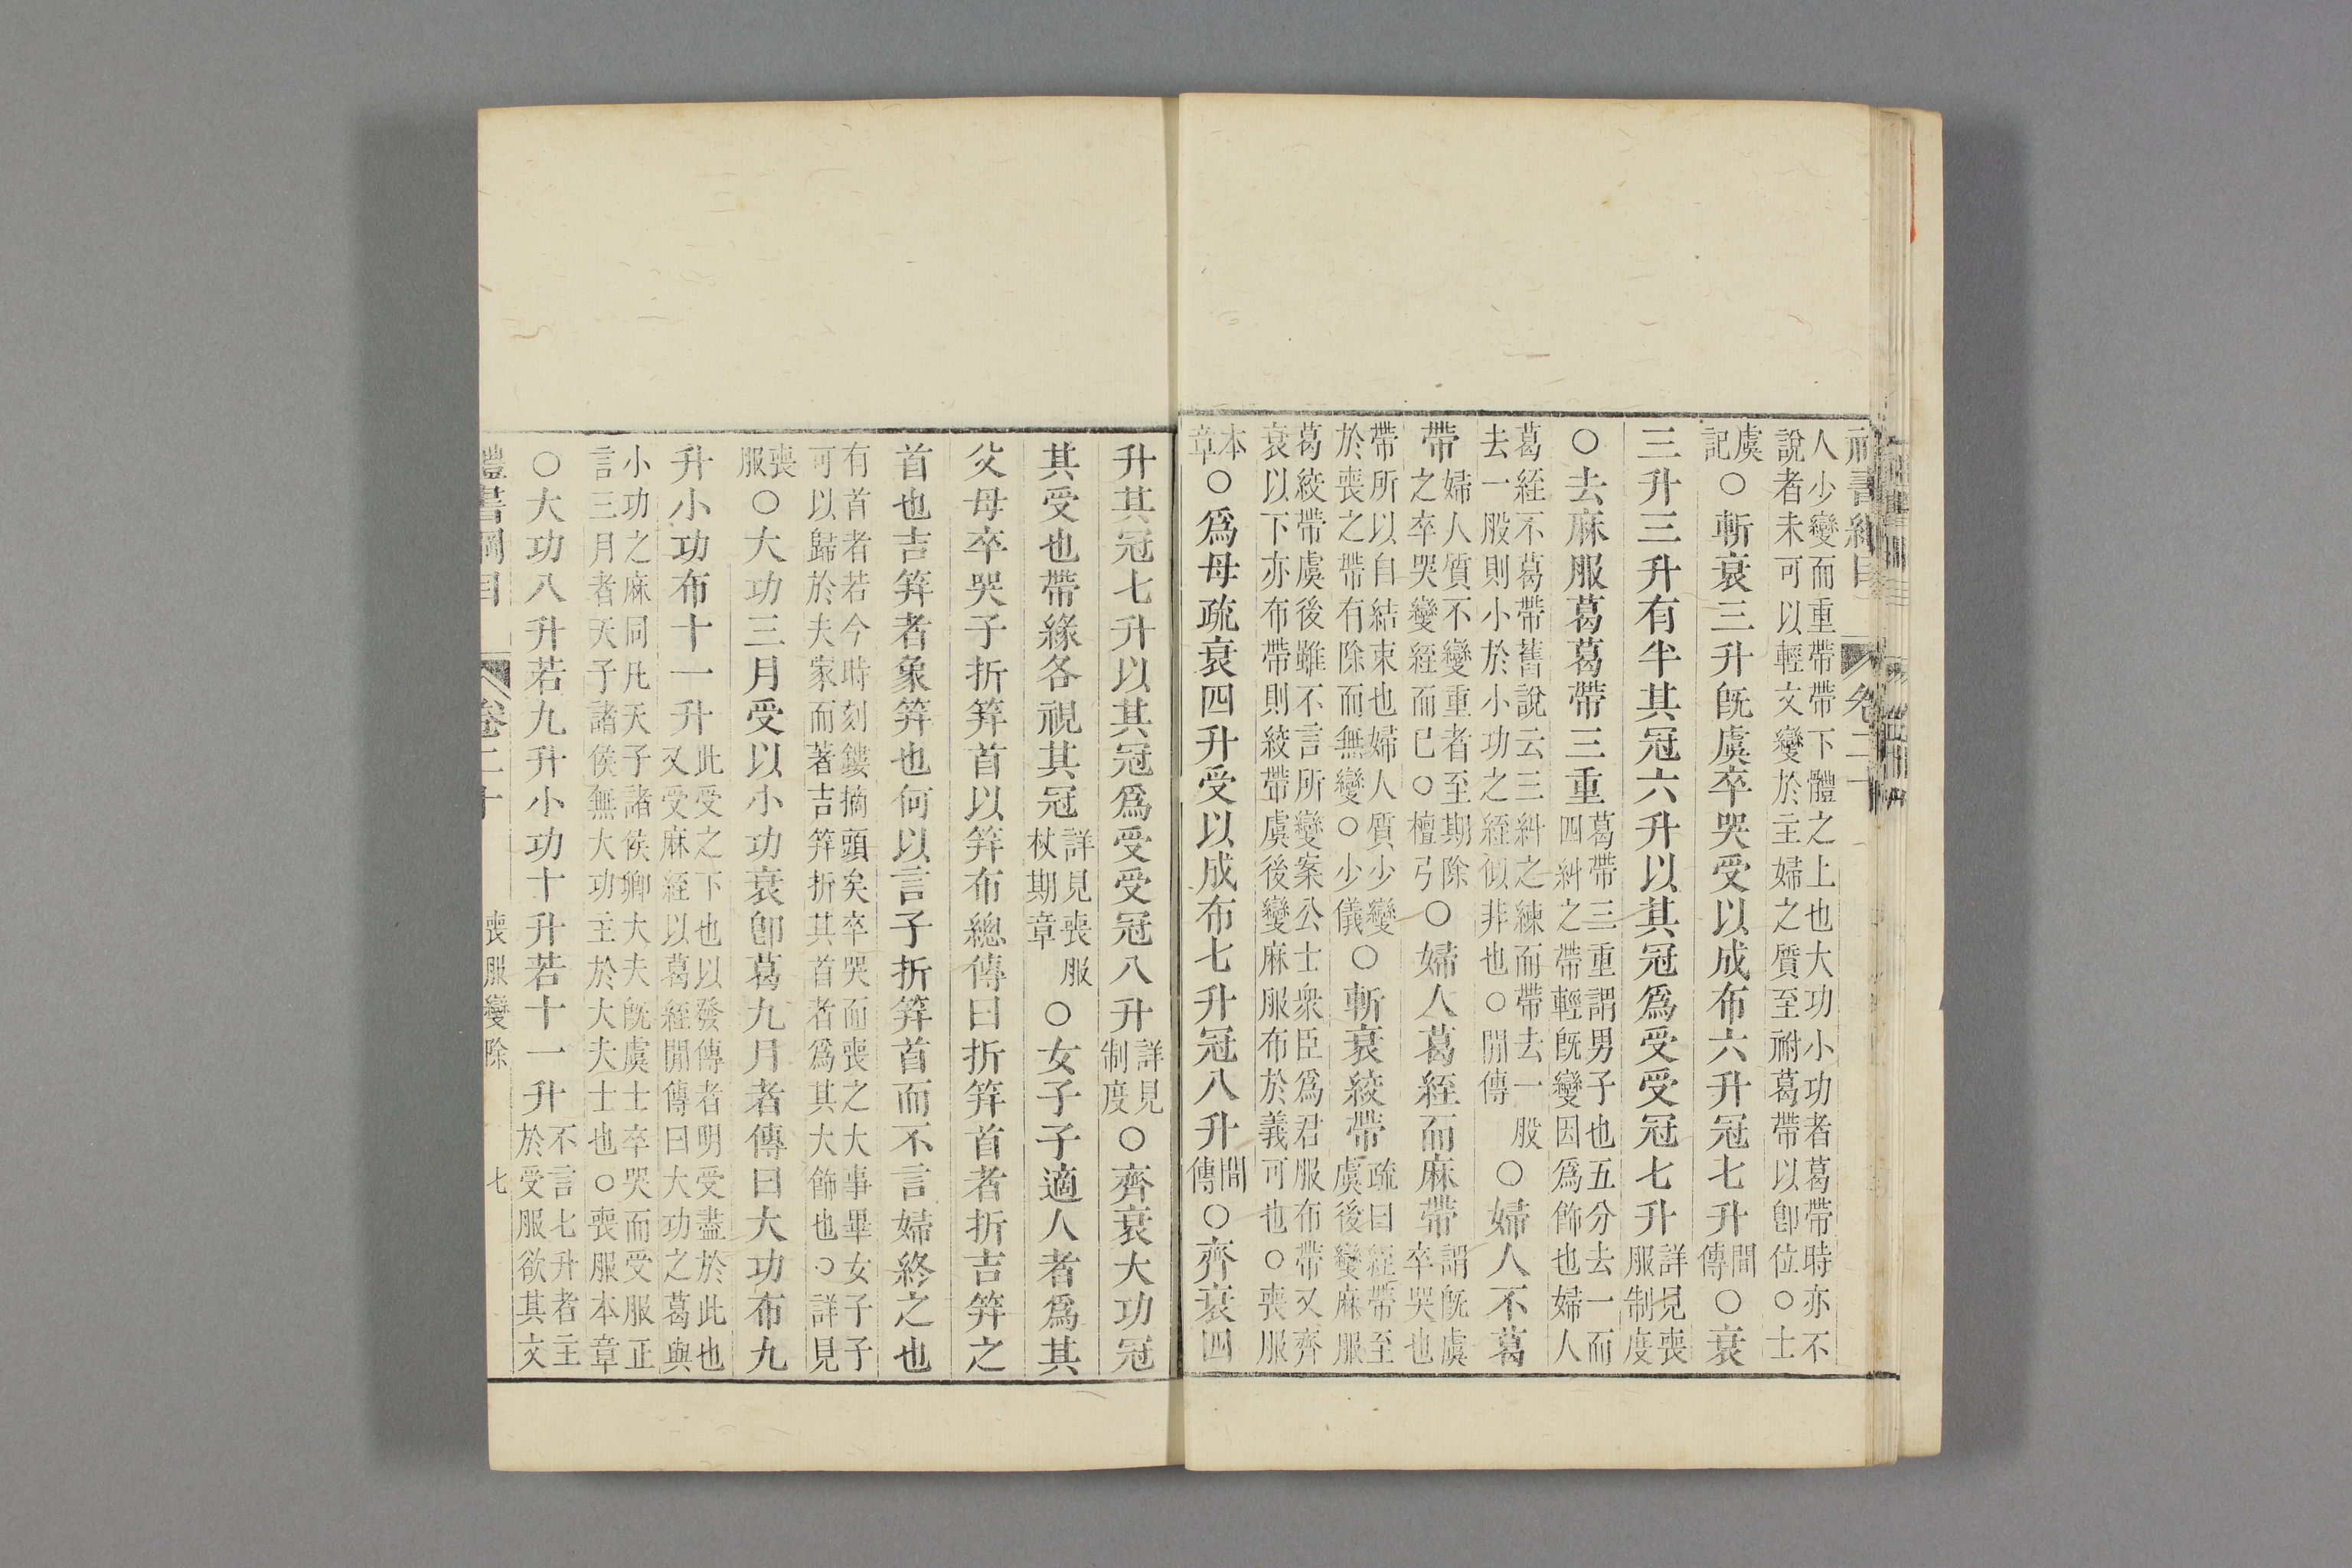 人少變而重帶帶下體之上也大功小功者葛帶時亦不
說者未可以輕文變於主婦之質至祔葛帶以卽位○士
虞記○斬衰三升旣虞卒哭受以成布六升冠七升間傳○衰
三升三升有半其冠六升以其冠爲受受冠七升詳見喪服制度
○去麻服葛葛帶三重葛帶三重謂男子也五分去一而四糾之帶輕旣變因爲飾也婦人
葛絰不葛帶舊說云三糾之練而帶去一股
去一股則小於小功之絰似非也○間傳○婦人不葛
帶婦人質不變重者至期除之卒哭變絰而已○檀弓○婦人葛絰而麻帶謂旣虞卒哭也
帶所以自結束也婦人質少變於喪之帶有除而無變○少儀○斬衰絞帶疏曰絰帶至虞後變麻服
葛絞帶虞後雖不言所變案公士衆臣爲君服布帶又齊
衰以下亦布帶則絞帶虞後變麻服布於義可也○喪服
本章○爲母疏衰四升受以成布七升冠八升間傳○齊衰四
升其冠七升以其冠爲受受冠八升詳見制度○齊衰大功冠
其受也帶緣各視其冠詳見喪服杖期章○女子子適人者爲其
父母卒哭子折笄首以笄布總傳曰折笄首者折吉笄之
首也吉笄者象笄也何以言子折笄首而不言婦終之也
有首者若今時刻鏤摘頭矣卒哭而喪之大事畢女子子
可以歸於夫家而著吉笄折其首者爲其大飾也○詳見
喪服○大功三月受以小功衰卽葛九月者傳曰大功布九
升小功布十一升此受之下也以發傳者明受盡於此也又受麻絰以葛絰間傳曰大功之葛與
小功之麻同凡天子諸侯卿大夫旣虞士卒哭而受服正
言三月者天子諸侯無大功主於大夫士也○喪服本章
○大功八升若九升小功十升若十一升不言七升者主於受服欲其文
禮書綱目 卷二十 喪服變除 七